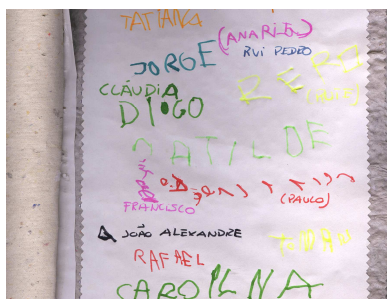 TATIANA
(ANARITA)
JORGE
RUI PEDRO
CLÁUDIA
DIOGO
MATILDE
FRANCISCO
(PAULO)
JOÃO ALEXANDRE
RAFAEL
CAROLINA